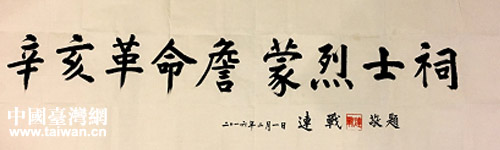 辛亥革命詹蒙烈士祠
二〇一六年二月一日 連戰 敬題
中國臺灣網
www.taiwan.cn